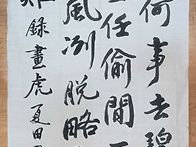 何事去碧
任偷閒一
風冽脱略
錄畫虎夏田